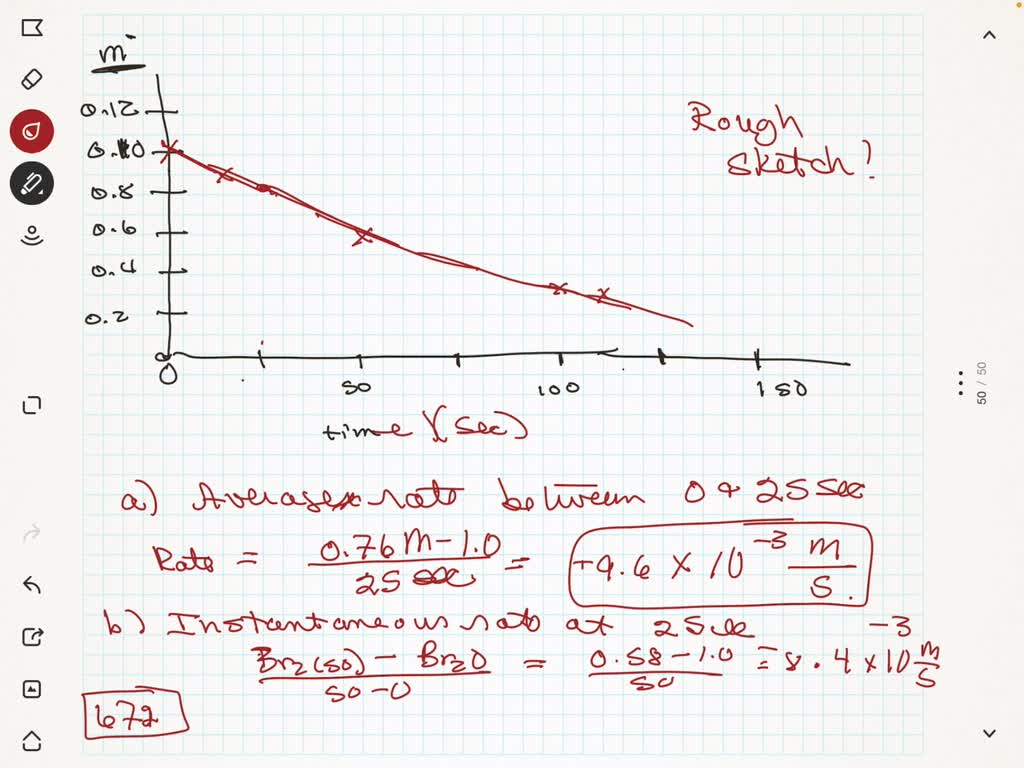 m
0.12
0.10
0.8
0.6
0.4
0.2
0
50
100
150
Rough
sketch?
time (sec)
a) Average rate between 0 & 25 sec
Rate = 0.76 M - 1.0 / 25 sec = +9.6 x 10^-3 M/S.
b) Instantaneous rate at 25 sec
Br2(50) - Br20 / 50-0 = 0.58 - 1.0 / 50 = 8.4 x 10^-3 M/S
672
50 / 50